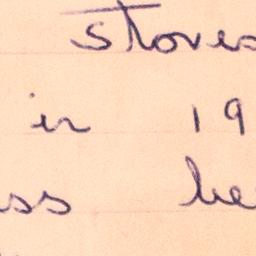 stoves
in 19
ss be